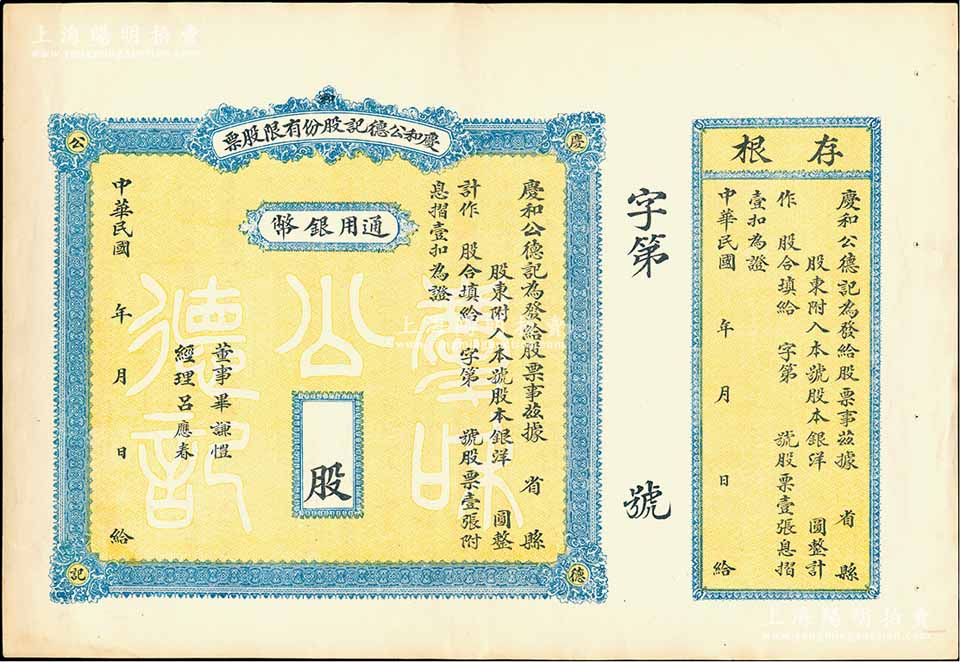 上海陽明拍賣
www.yangmingauction.com
存根
慶和公德記為發給股票事茲據 省 縣
股東附入本號股本銀洋 圓整計
作 股合填給 字第 號股票壹張息摺
壹扣為證
中華民國 年 月 日 給
字第 號
慶和公德記股份有限股票
和
慶
公
德
記
通用銀幣
慶和公德記為發給股票事茲據 省 縣
股東附入本號股本銀洋 圓整
計作 股合填給 字第 號股票壹張附
息摺壹扣為證
股
董事畢謙愷
經理呂應春
中華民國 年 月 日 給
慶和
公
德記
上海陽明拍賣
www.yangmingauction.com
上海陽明拍賣
www.yangmingauction.com